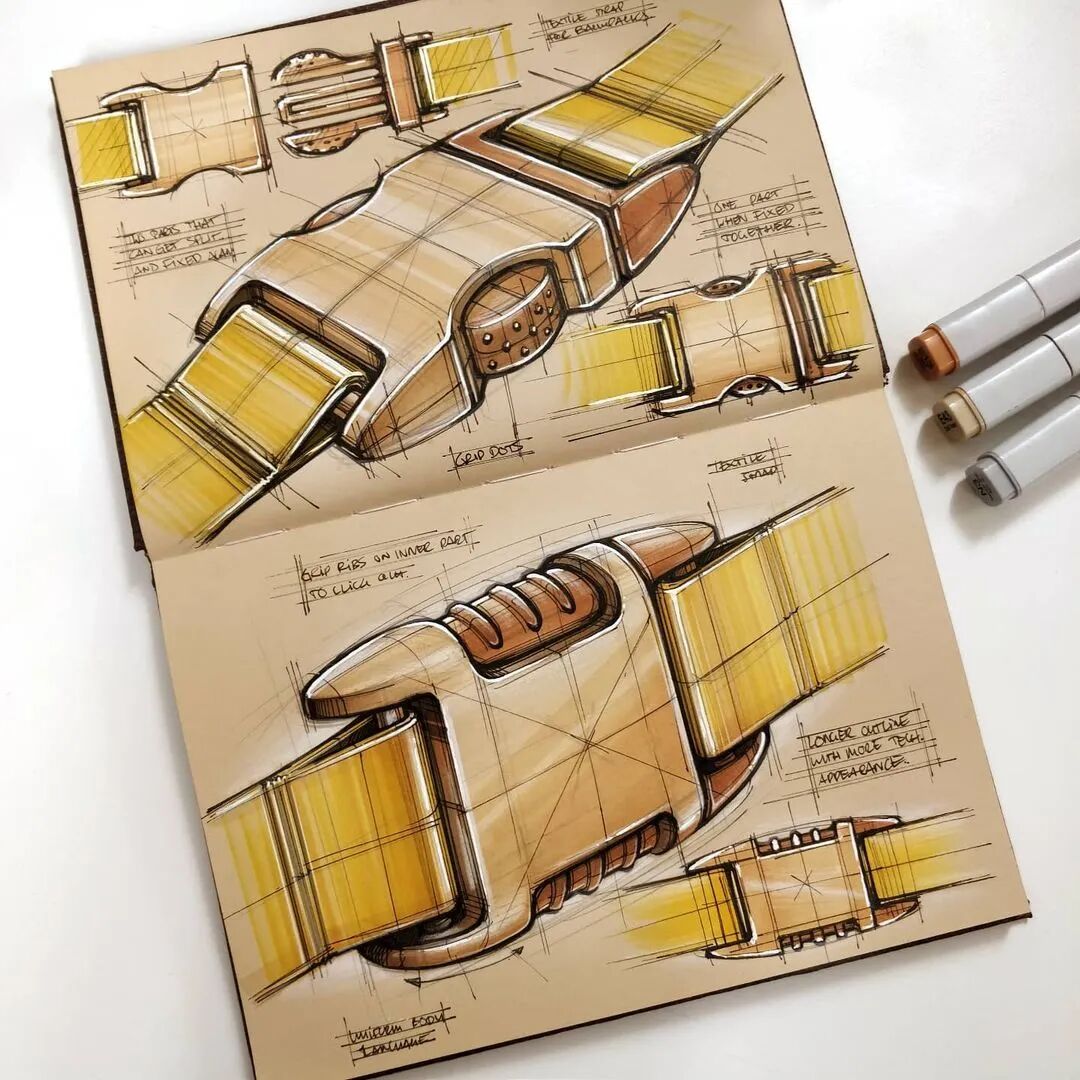 TEXTILE STRAP
FOR BACKPACKS
TWO PARTS THAT
CAN GET SPLIT
AND FIXED AGAIN
ONE PART
WHEN FIXED
TOGETHER!
GRIP DOTS
TEXTILE
STRAP
GRIP RIBS ON INNER PART
TO CLICK OUT.
LONGER OUTLINE
WITH MORE TECH.
APPEARANCE.
UNIFORM BODY
LANGUAGE